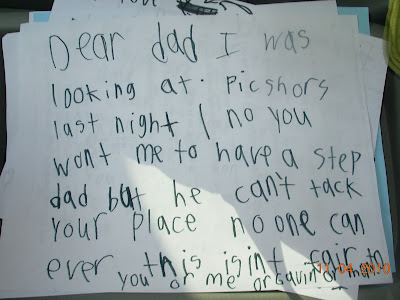 Dear dad I was
looking at. Picshors
last night I no you
wont me to have a step
dad but he can't tack
your place no one can
ever this isint fair to
you or me or gavin or